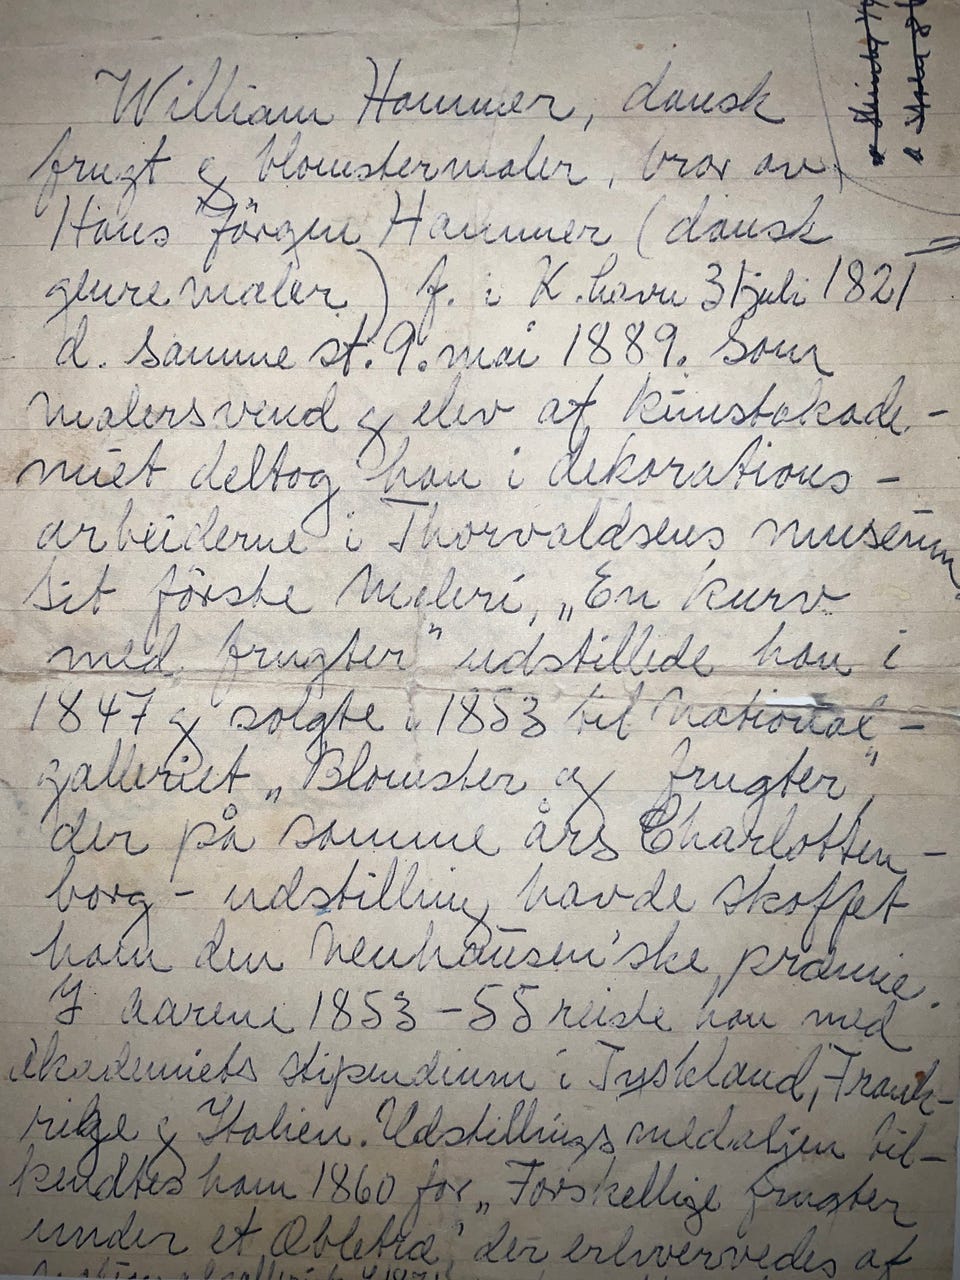 William Hammer, dansk
frugt & blomstermaler, bror av
Hans Jörgen Hammer (dansk
genremaler) f. i K.havn 31 juli 1821
d. samme st. 9. mai 1889. Som
malersvend & elev af kunstakade-
miet deltog han i dekorations-
arbeiderne i Thorvaldsens museum
Sit förste Maleri, „En kurv
med frugter" udstillede han i
1847 & solgte i 1853 til National-
galleriet „Blomster og frugter"
der på samme års Charlotten-
borg-udstilling havde skaffet
ham den Neuhausen'ske præmie.
I Aarene 1853-55 reiste han med
Akademiets stipendium i Tyskland, Frank-
rike & Italien. Udstillingsmedaljen til-
kendtes ham 1860 for „Forskellige frugter
under et Æbletræ" der erhvervedes af